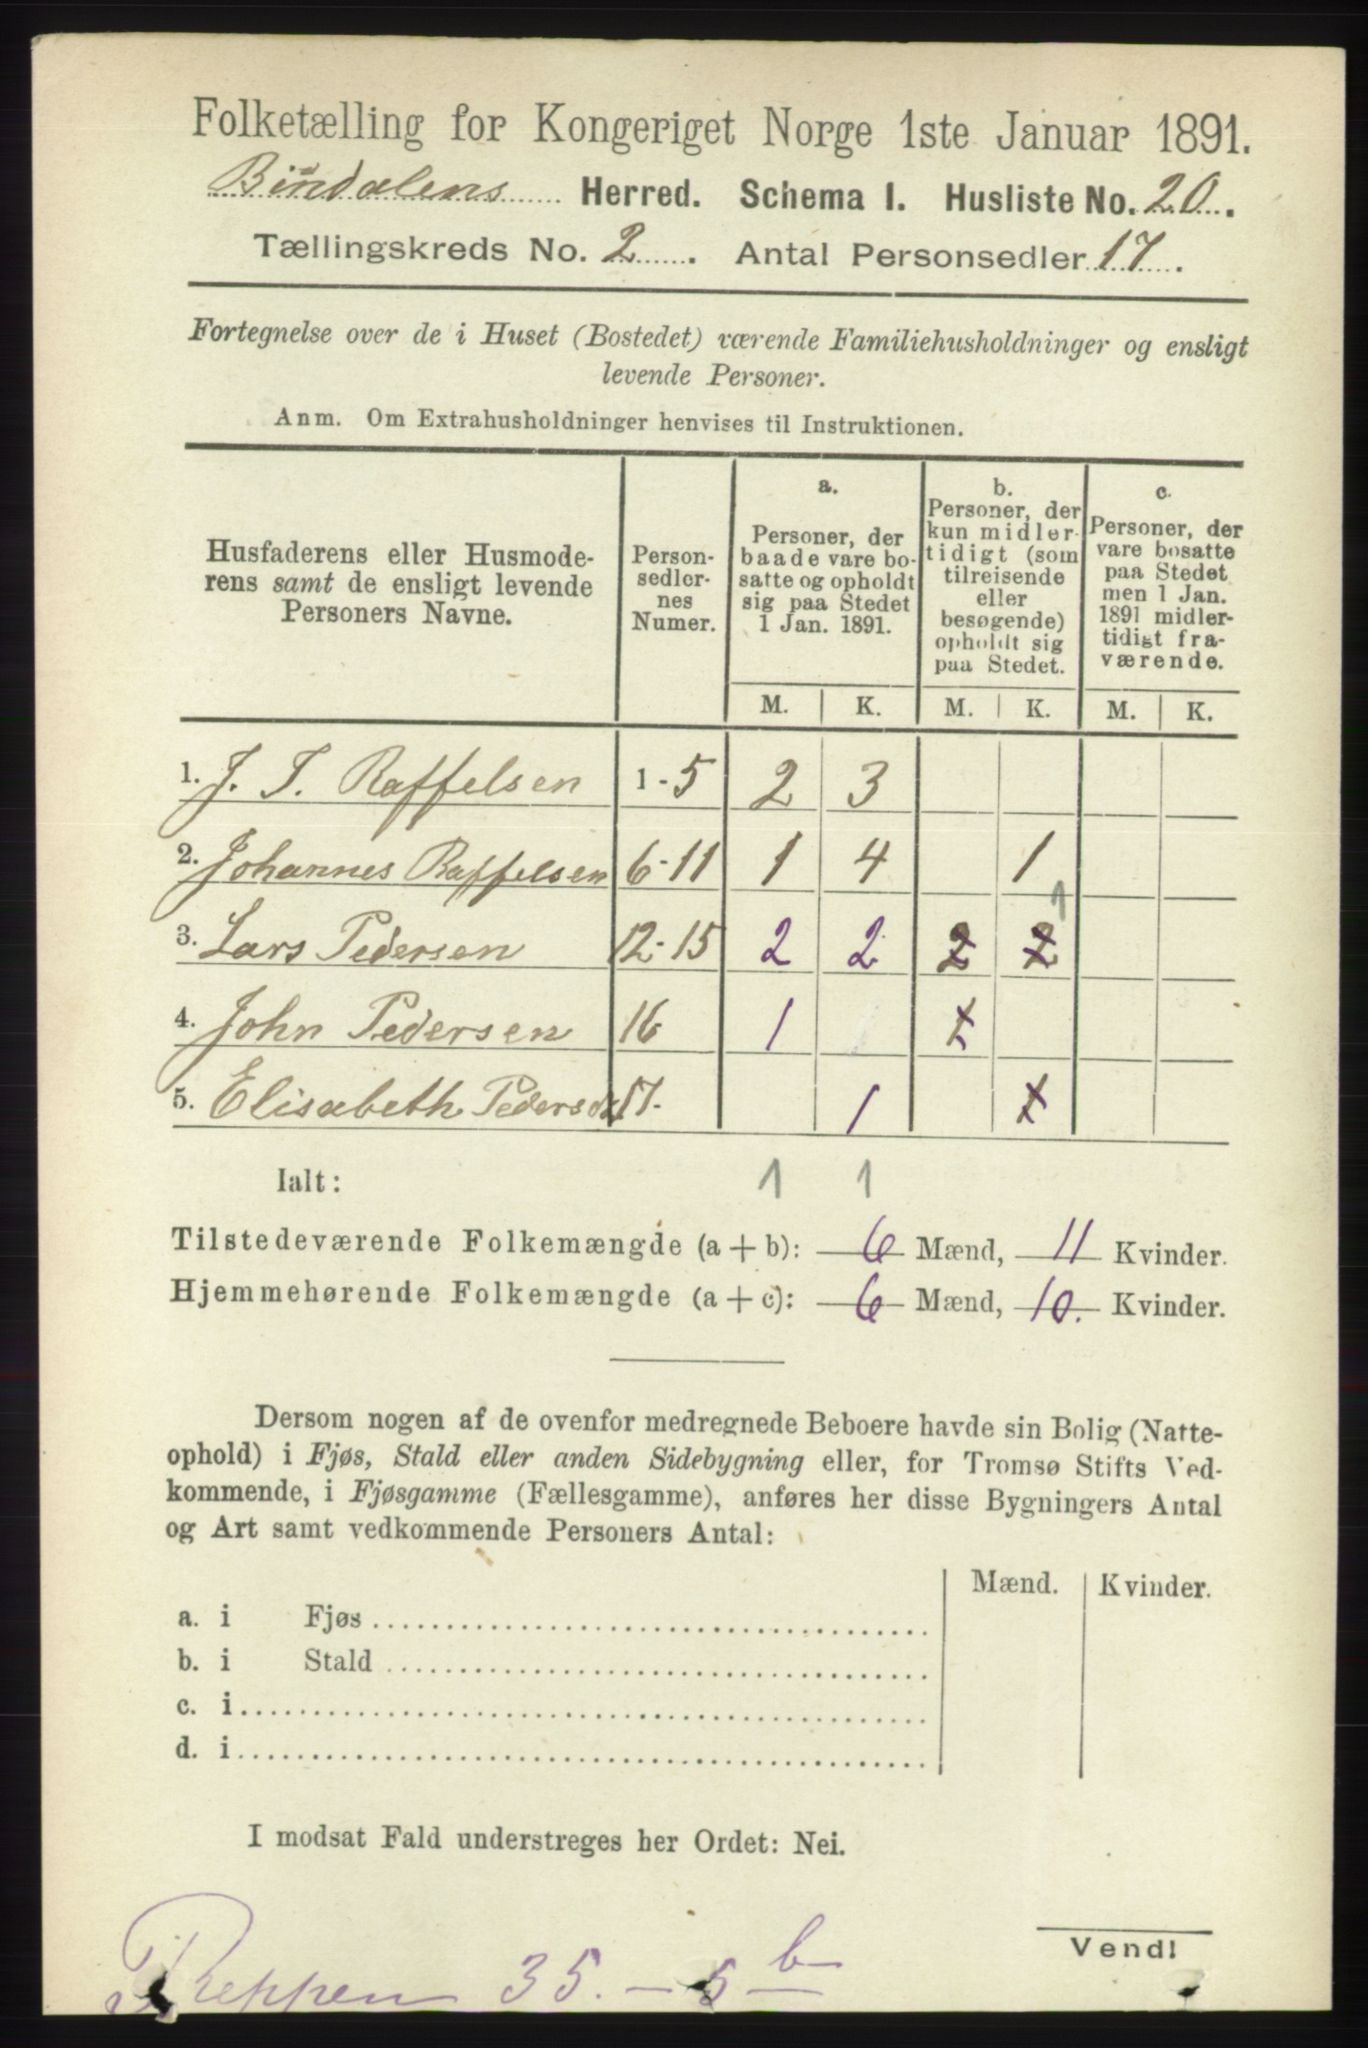 Folketælling for Kongeriget Norge 1ste Januar 1891.
Bindalens Herred. Schema I. Husliste No. 20.
Tællingskreds No. 2. Antal Personsedler 17.
Fortegnelse over de i Huset (Bostedet) værende Familiehusholdninger og ensligt
levende Personer.
Anm. Om Extrahusholdninger henvises til Instruktionen.
Husfaderens eller Husmode-
rens samt de ensligt levende
Personers Navne.
Person-
sedler-
nes
Numer.
a.
Personer, der
baade vare bo-
satte og opholdt
sig paa Stedet
1 Jan. 1891.
b.
Personer, der
kun midler-
tidigt (som
tilreisende
eller
besøgende)
opholdt sig
paa Stedet.
c.
Personer, der
vare bosatte
paa Stedet
men 1 Jan.
1891 midler-
tidigt fra-
værende.
M. K. M. K. M. K.
1. J. T. Raffelsen 1-5 2 3
2. Johannes Raffelsen 6-11 1 4 1
1
3. Lars Pedersen 12-15 2 2 2 2
4. John Pedersen 16 1 1
5. Elisabeth Pedersd. 17. 1 1
Ialt: 1 1
Tilstedeværende Folkemængde (a + b): 6 Mænd, 11 Kvinder.
Hjemmehørende Folkemængde (a + c): 6 Mænd, 10. Kvinder.
Dersom nogen af de ovenfor medregnede Beboere havde sin Bolig (Natte-
ophold) i Fjøs, Stald eller anden Sidebygning eller, for Tromsø Stifts Ved-
kommende, i Fjøsgamme (Fællesgamme), anføres her disse Bygningers Antal
og Art samt vedkommende Personers Antal:
Mænd. Kvinder.
a. i Fjøs
b. i Stald
c. i
d. i
I modsat Fald understreges her Ordet: Nei.
Vend!
Reppen 35. - 5 b